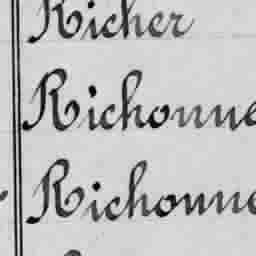 Richer
Richonne
Richonne